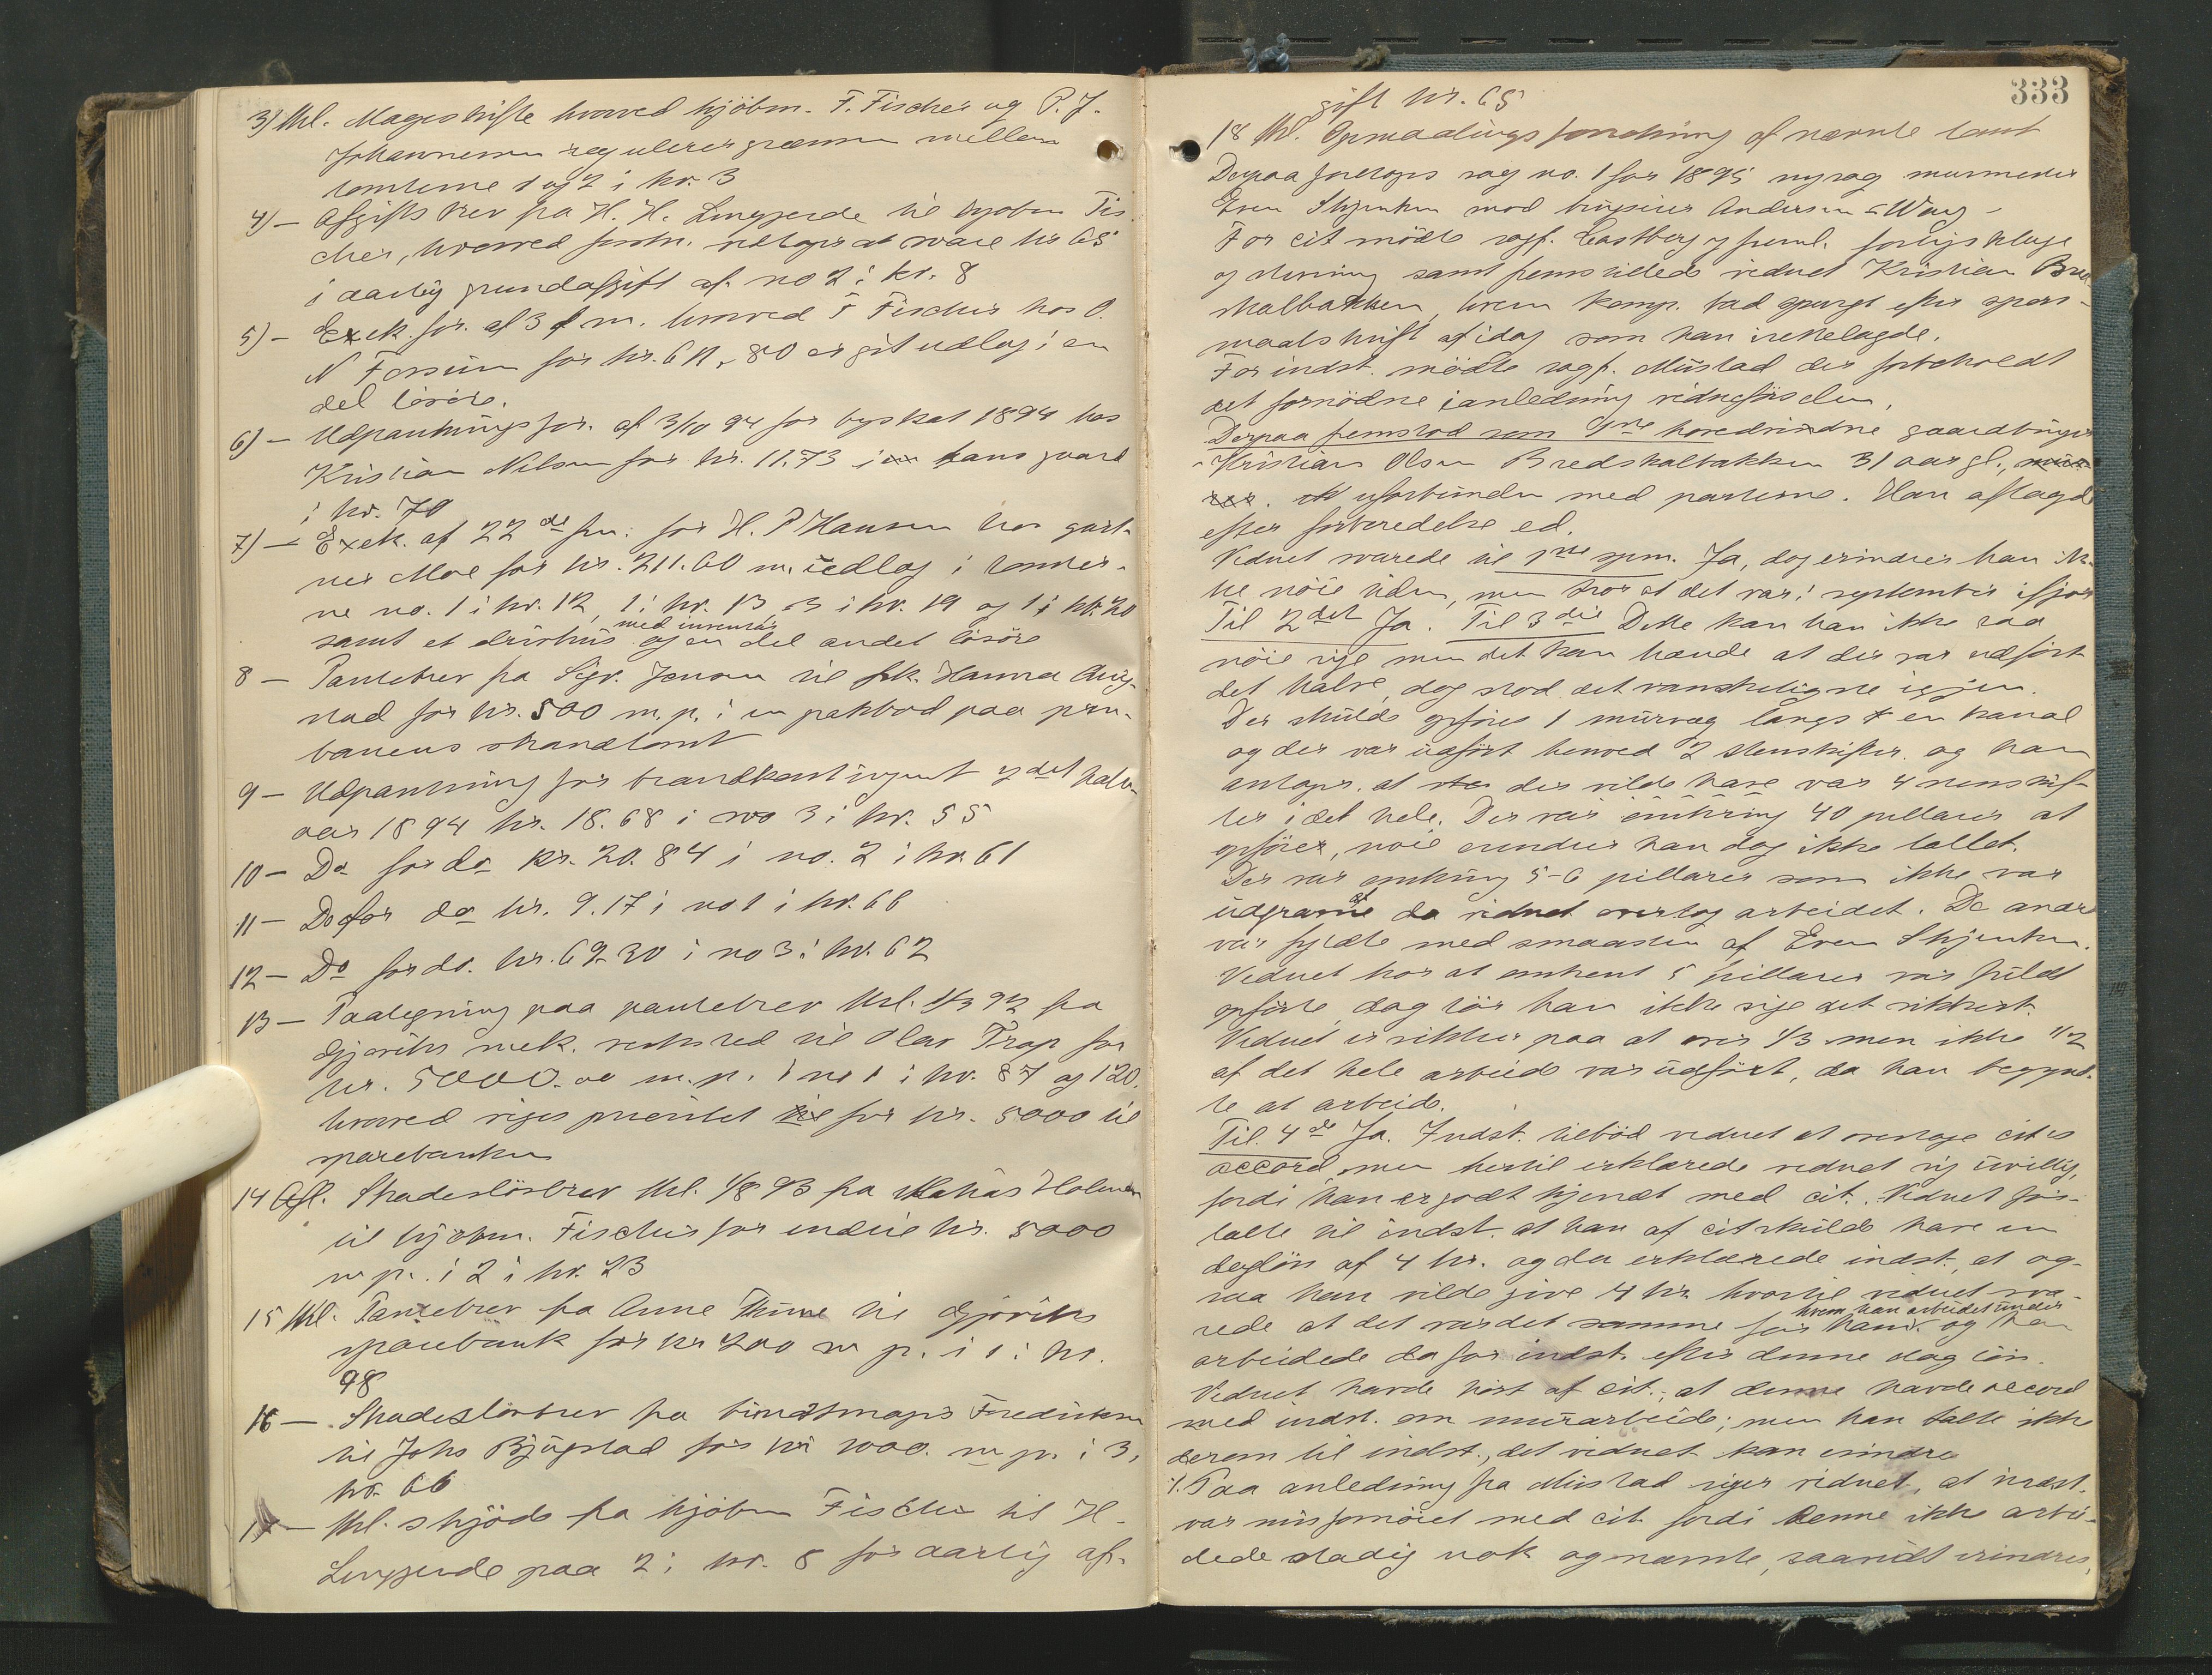 3) Thl. Mageskifte hvorved kjöbm. F. Fischer og P. J.
Johannessen regulerer grænsen mellem
tomterne 1 og 2 i kv. 3
4) — Afgiftsbrev fra H. H. Lingjerde til kjöbm Fis-
cher, hvorved förstn. vedtager at svare kr 65
i aarlig grundafgift af no 2 i kv. 8
5) — Exek. for. af 3 d m. hvorved F Fischer hos O.
N Forsum for kr. 61,80 er git udlæg i en
del lösöre.
6) — Udpantnings for. af 3/10 94 for byskat 1894 hos
Kristian Nilsen for kr. 11.73 i hans gaard
i kv. 70
7) — Exek. af 22de fm. for H. P Hansen hos gart-
ner Moe for kr. 211.60 m. udlæg i tomter-
ne no. 1 i kv. 12, 1 i kv. 13, 3 i kv. 19 og 1 i kv. 20
med inventar
samt et drivhus og en del andet lösöre
8 — Pantebrev fra Sigv. Jensen til frk. Hanna Aug-
nad for kr. 500 m. p. i en pakbod paa prn-
banens strandtomt
9 — Udpantning for brandkontingent 2det halv-
aar 1894 kr. 18.68 i no 3 i kv. 55
10 — Do for do kr. 20.84 i no. 2 i kv. 61
11 — Do for do kr. 9.17 i no 1 i kv. 66
12 — Do for do. kr. 69.30 i no 3 i kv. 62
13 — Paategning paa pantebrev thl. 1/3 92 fra
Gjöviks mek. verksted til Olav Trap for
kr. 5000.00 m. p. i no 1 i kv. 87 og 120.
hvorved viges prioritet for kr. 5000 til
sparebanken
14 Afl. Skadeslösbrev thl. 1/8 93 fra Mathias Holmen
til kjöbm. Fischer for indtil kr. 5000
m p. i 2 i kv. 23
15 Thl. Pantebrev fra Anne Thune til Gjöviks
sparebank for kr 200 m p. i 1 i kv.
98
16 — Skadeslösbrev fra bundtmager Fredriksen
til Johs Bjugstad for kr 1000. m p. i 3,
kv. 66
17 — Thl. skjöde fra kjöbm Fischer til H.
Lingjerde paa 2 i kv. 8 for aarlig af-
333
gift kr. 65
18 Thl. Opmaalingsforretning af nævnte tomt
Derpaa foretoges sag no. 1 for 1895 nysag murmester
Even Skjenken mod brugseier Andersen-Wang –
For cit mödte sagf. Castberg og freml. forligsklage
og stevning samt fremstillede vidnet Kristian Bred-
skalbakken, hvem komp. bad spurgt efter spørs-
maalskrift af idag som han irettelagde.
For indst. mödte sagf. Mustad der forbeholdt
det fornödne i anledning vidneförselen.
Derpaa fremstod som 1ste hovedvidne gaardbruger
Kristian Olsen Bredskalbakken 31 aar gl.,
uforbunden med parterne. Han aflagde
efter forberedelse ed.
Vidnet svarede til 1ste spm. Ja, dog erindrer han ik-
ke nöie tiden, men tror at det var i september ifjor
Til 2det Ja. Til 3die Dette kan han ikke saa
nöie sige men det kan hænde at der var udfört
det halve, dog stod det vanskeligste igjen.
Der skulde opföres 1 murvæg langs en kanal
og der var udfört henved 2 stenskifter. og han
antager. at der vilde have var 4 stenskif-
ter i det hele. Der var omkring 40 pillarer at
opföres, nöie erindrer han dog ikke tallet.
Der var omkring 5-6 pillarer som ikke var
udgravne da vidnet overtog arbeidet. De andre
var fyldte med smaasten af Even Skjenken.
Vidnet tror at omtrent 5 pillarer var fuldt
opförte, dog tör han ikke sige det sikkert.
Vidnet er sikker paa at over 1/3 men ikke 1/2
af det hele arbeide var udfört, da han begynd-
te at arbeide.
Til 4de Ja. Indst. tilböd vidnet at overtage cit's
accord, men hertil erklærede vidnet sig uvillig,
fordi han er godt kjendt med cit. Vidnet for-
talte til indst. at han af cit skulde have en
daglön af 4 kr. og da erklærede indst. at og-
saa han vilde give 4 kr. hvortil vidnet sva-
hvem han arbeidet under
rede at det var det samme for ham. og han
arbeidede da for indst. efter denne daglön.
Vidnet havde hört af cit., at denne havde accord
med indst. om murarbeide; men han talte ikke
derom til indst., det vidnet kan erindre
Paa anledning fra Mustad siger vidnet, at indst.
var misfornöiet med cit fordi denne ikke arbei-
dede stadig nok og nævnte, saavidt erindres,